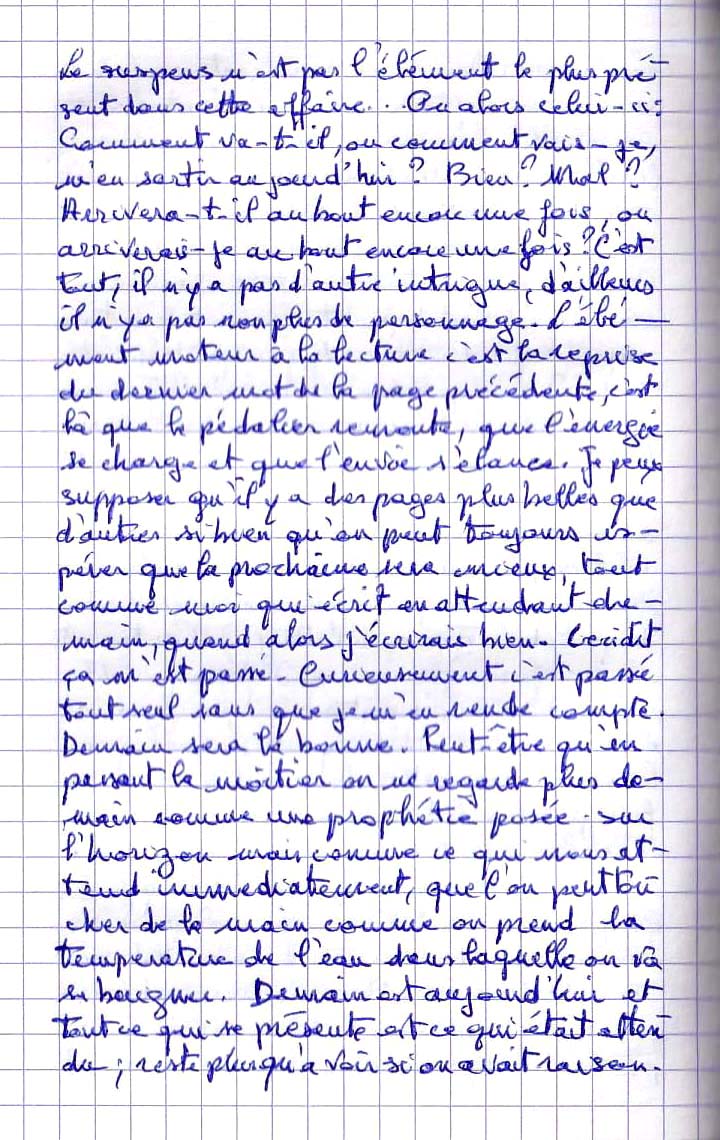 Le suspens n'est pas l'élément le plus pré-
sent dans cette affaire... Ou alors celui-ci:
Comment va-t-il, ou comment vais-je,
m'en sortir aujourd'hui ? Bien ? Mal ?
Arrivera-t-il au bout encore une fois, ou
arriverais-je au bout encore une fois ? C'est
tout, il n'y a pas d'autre intrigue, d'ailleurs
il n'y a pas non plus de personnage. L'élé-
ment moteur à la lecture c'est la reprise
du dernier mot de la page précédente, c'est
là que le pédalier remonte, que l'énergie
se charge et que l'envie s'élance. Je peux
supposer qu'il y a des pages plus belles que
d'autres si bien qu'on peut toujours es-
pérer que la prochaine sera mieux, tout
comme moi qui écrit en attendant de-
main, quand alors j'écrirais bien. Ceci dit
ça m'est passé. Curieusement c'est passé
tout seul sans que je m'en rende compte.
Demain sera la bonne. Peut-être qu'en
passant la moitié on ne regarde plus de-
main comme une prophétie posée sur
l'horizon mais comme ce qui nous at-
tend immediatement, que l'on peut tou
cher de la main comme on prend la
température de l'eau dans laquelle on va
se baigner. Demain est aujourd'hui et
tout ce qui se présente est ce qui était atten
du ; reste plus qu'a voir si on avait raison.